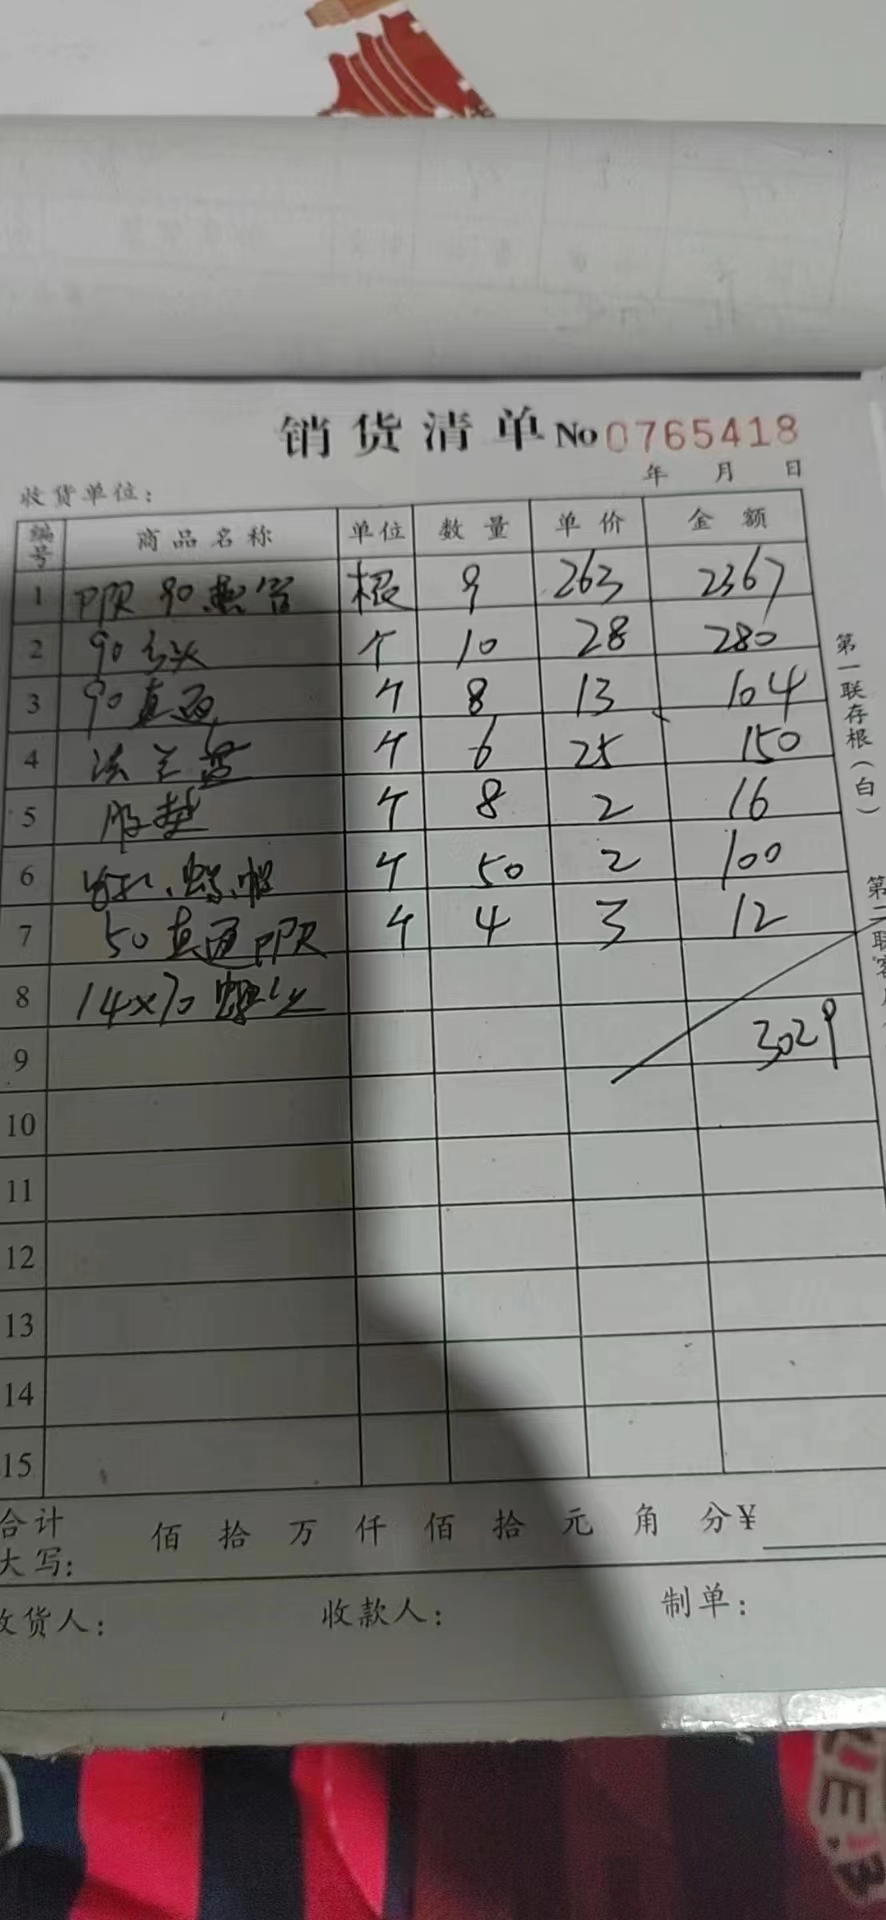 销货清单 No 0765418
收货单位： 年 月 日
编号 商品名称 单位 数量 单价 金额
1 PPR 90热管 根 9 263 2367
2 90弯头 个 10 28 280
3 90直通 个 8 13 104
4 法兰盘 个 6 25 150
5 胶垫 个 8 2 16
6 个 50 2 100
7 50直通PPR 个 4 3 12
8 14×70 螺丝
9 3029
10
11
12
13
14
15
合计大写： 佰 拾 万 仟 佰 拾 元 角 分¥
收货人： 收款人： 制单：
第一联存根（白）
第二联客